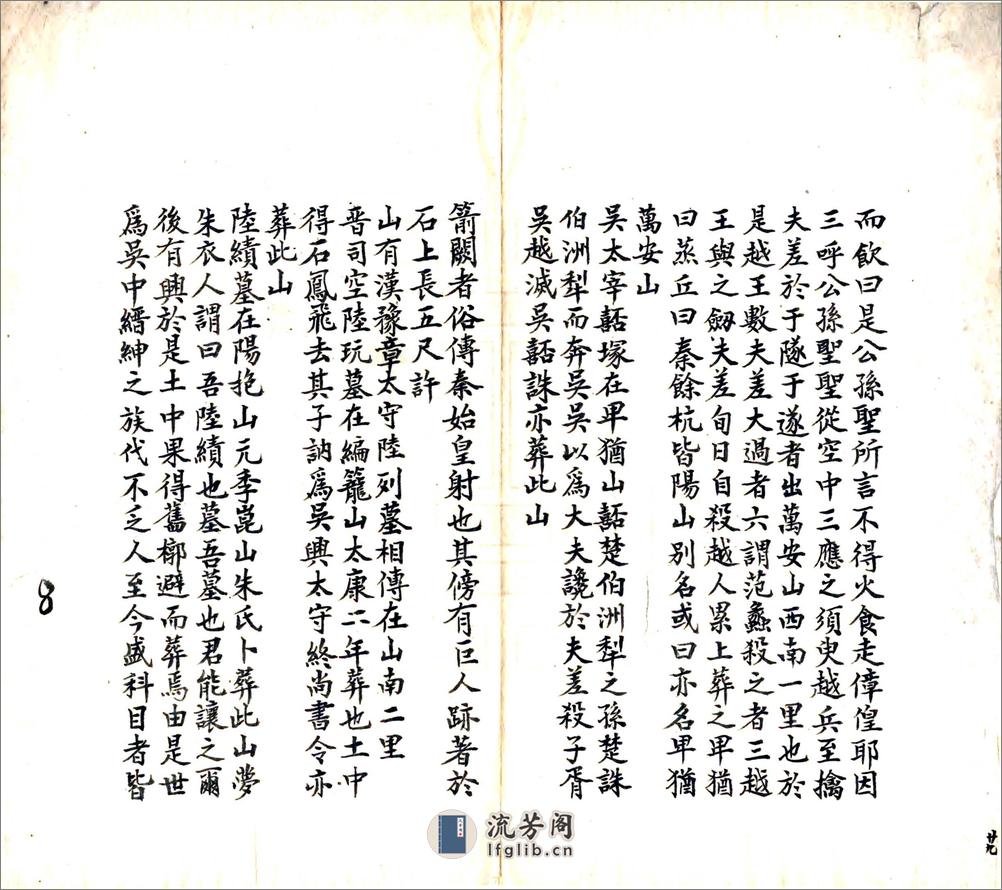 而飲曰是公孫聖所言不得火食走偟耶因
三呼公孫聖聖從空中三應之須臾越兵至擒
夫差於于隧于遂者出萬安山西南一里也於
是越王數夫差大過者六謂范蠡殺之者三越
王與之劒夫差旬日自殺越人累上葬之卑猶
曰蒸丘曰秦餘杭皆陽山別名或曰亦名卑猶
萬安山
吳太宰嚭塚在卑猶山嚭楚伯洲犁之孫楚誅
伯洲犁而奔吳吳以爲大夫讒於夫差殺子胥
吳越滅吳嚭誅亦葬此山
箭闕者俗傳秦始皇射也其傍有巨人跡著於
石上長五尺許
山有漢豫章太守陸列墓相傳在山南二里
晉司空陸玩墓在編籠山太康二年葬也土中
得石鳳飛去其子訥爲吳興太守終尚書令亦
葬此山
陸績墓在陽抱山元季崑山朱氏卜葬此山夢
朱衣人謂曰吾陸績也墓吾墓也君能讓之爾
後有興於是土中果得舊槨避而葬焉由是世
爲吳中縉紳之族代不乏人至今盛科目者皆
8
廿九
流芳阁
lfglib.cn